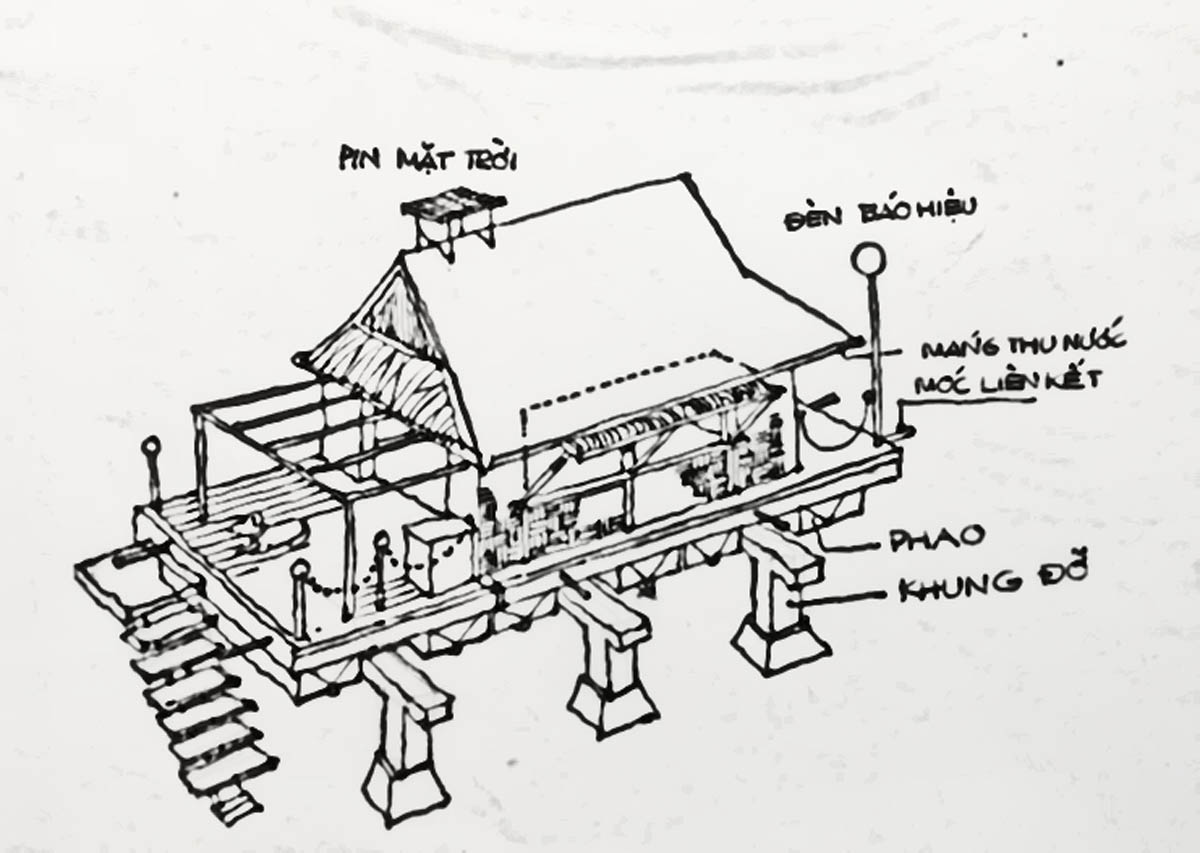 PIN MẶT TRỜI
ĐÈN BÁO HIỆU
MÁNG THU NƯỚC
MÓC LIÊN KẾT
PHAO
KHUNG ĐỠ